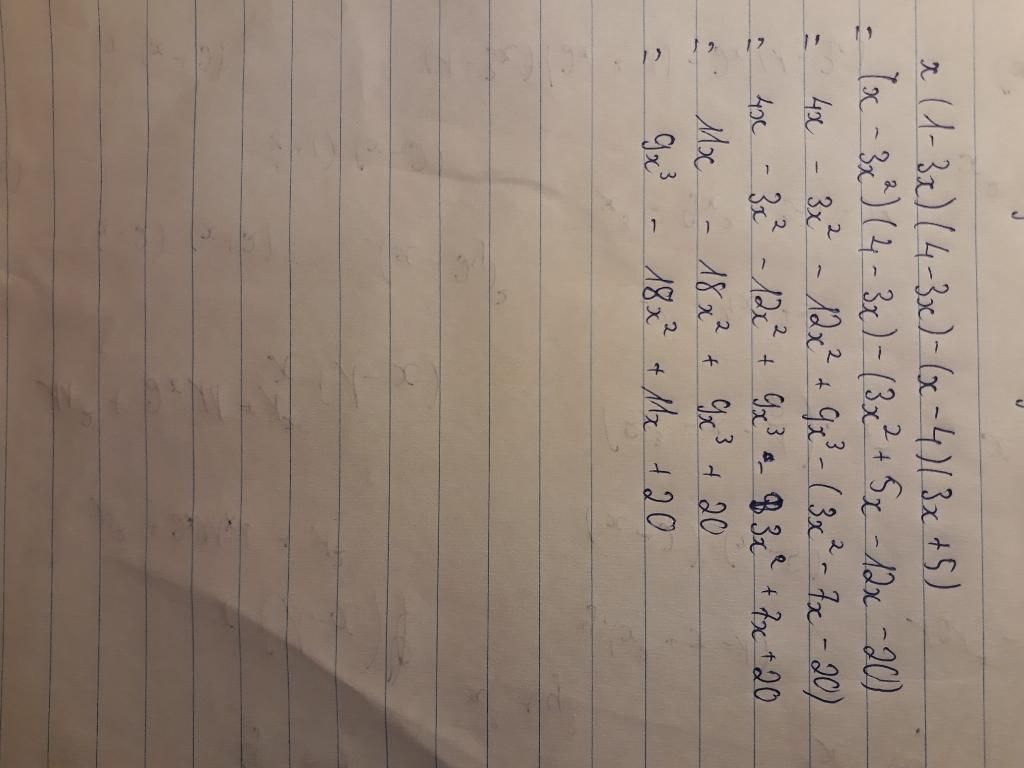 x (1 - 3x) (4 - 3x) - (x - 4) (3x + 5)
= (x - 3x²) (4 - 3x) - (3x² + 5x - 12x - 20)
= 4x - 3x² - 12x² + 9x³ - (3x² - 7x - 20)
= 4x - 3x² - 12x² + 9x³ - 3x² + 7x + 20
= 11x - 18x² + 9x³ + 20
= 9x³ - 18x² + 11x + 20